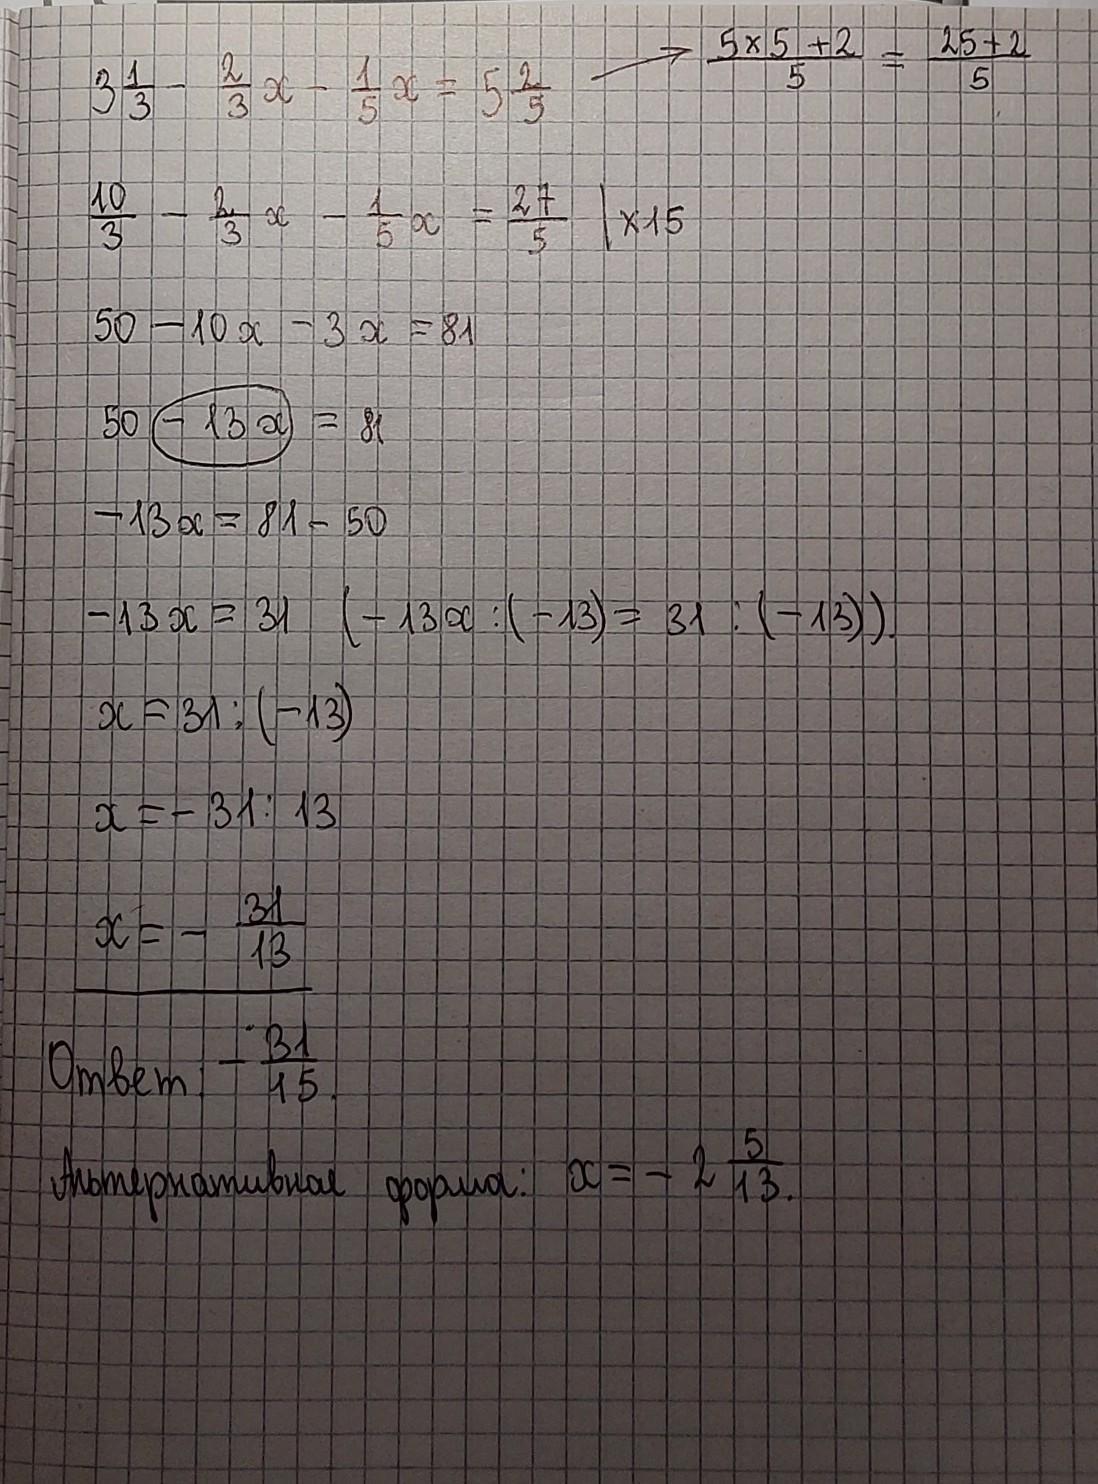 3 1/3 - 2/3 x - 1/5 x = 5 2/5 → (5×5+2)/5 = (25+2)/5
10/3 - 2/3 x - 1/5 x = 27/5 | ×15
50 - 10x - 3x = 81
50 - 13x = 81
-13x = 81 - 50
-13x = 31 (-13x : (-13) = 31 : (-13)).
x = 31 : (-13)
x = - 31 : 13
x = - 31/13
Ответ: - 31/15.
Альтернативная форма: x = - 2 5/13.